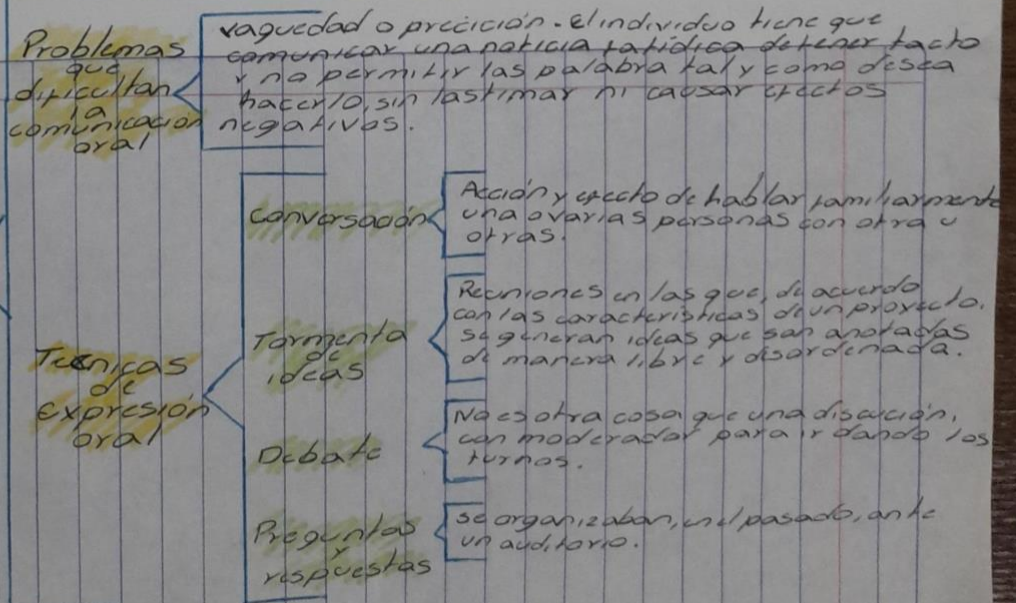 Problemas
que
dificultan
la
comunicación
oral
vaguedad o preición. El individuo tiene que
comunicar una noticia fatídica detener tacto
y no permitir las palabra tal y como desea
hacerlo, sin lastimar ni causar efectos
negativos.
Técnicas
de
expresión
oral
Conversación
Acción y efecto de hablar familiarmente
una o varias personas con otra u
otras.
Tormenta
de
ideas
Reuniones en las que, de acuerdo
con las características de un proyecto,
se generan ideas que son anotadas
de manera libre y disordenada.
Debate
No es otra cosa que una discución,
con moderador para ir dando los
turnos.
Preguntas
y
respuestas
se organizaban, en el pasado, ante
un auditorio.